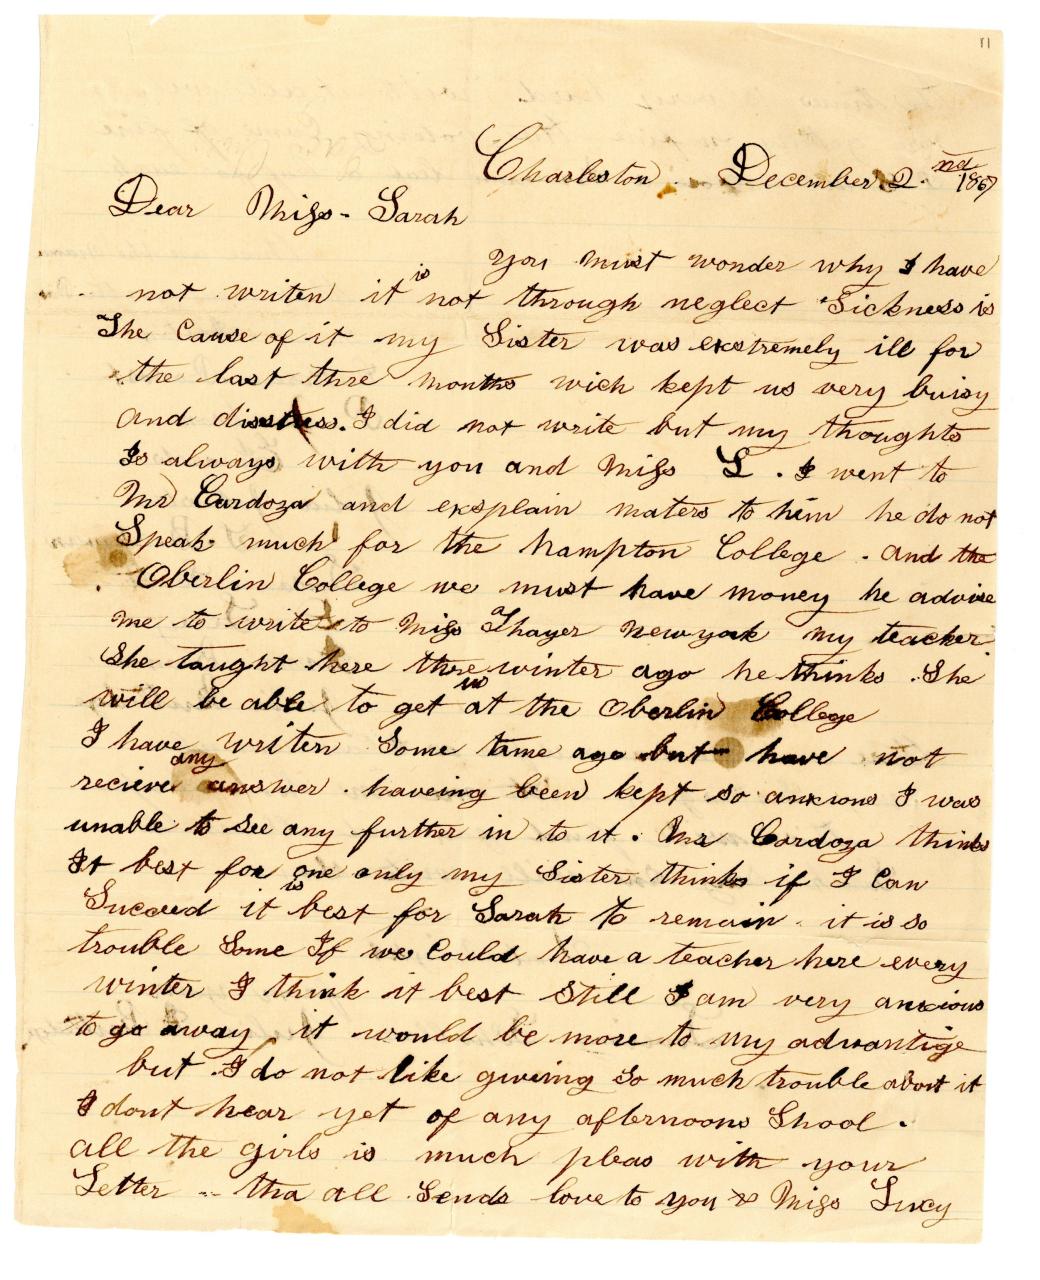 11
Charleston. December 2nd 1867
Dear Miss- Sarah
you must wonder why I have
not writen it is not through neglect Sickness is
The Cause of it my Sister was exstremely ill for
the last thre months wich kept us very buisy
and disstress. I did not write but my thoughts
Is always with you and Miss L. I went to
Mr Cardoza and exsplain maters to him he do not
Speak much for the hampton College. and the
Oberlin College we must have money he advise
me to write to Miss Thayer Newyork my teacher
She taught here thre winter ago he thinks She
will be able to get us at the Oberlin College
I have writen Some tame ago but have not
recieve any answer. haveing been kept so ancious I was
unable to see any further in to it. Mr Cardoza thinks
It best for one only my Sister thinks if I Can
Succeed it is best for Sarah to remain. it is so
trouble Some If we Could have a teacher here every
winter I think it best Still I am very ancious
to go away it would be more to my advantige
but I do not like giveing so much trouble about it
I dont hear yet of any afternoons Shool.
all the girls is much pleas with your
Letter -- tha all Sends love to you & Miss Lucy